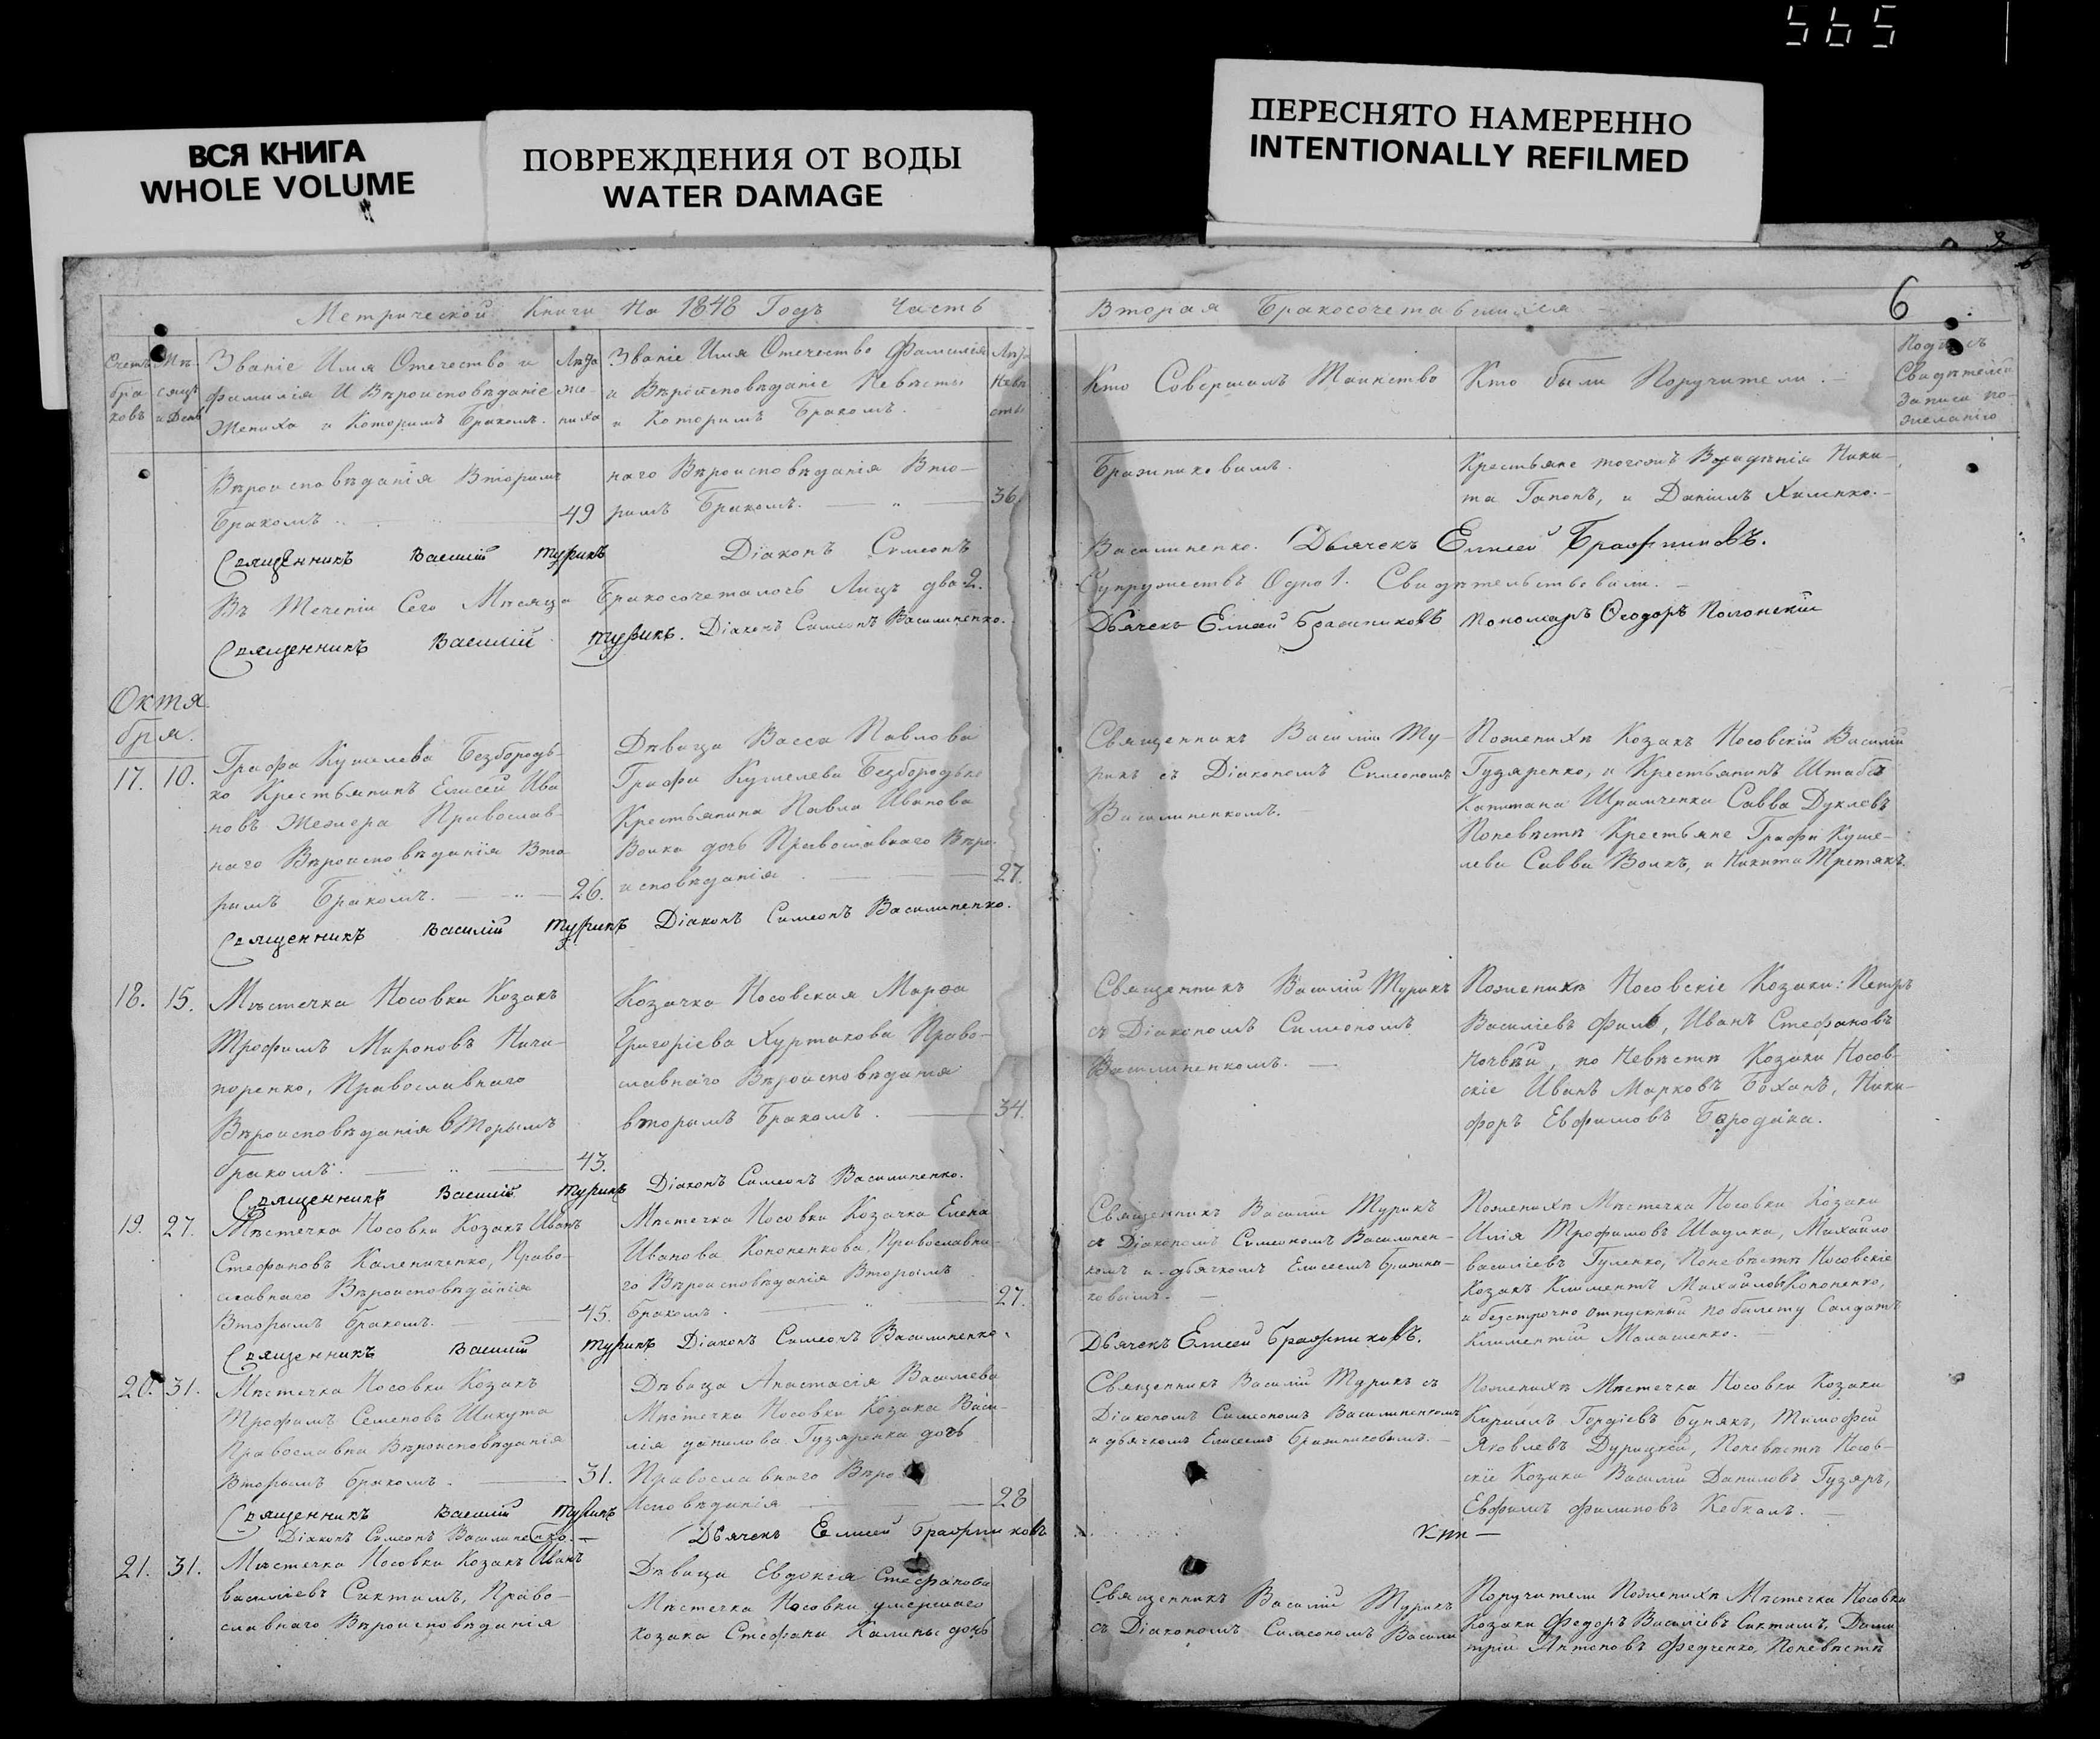 565
ВСЯ КНИГА
WHOLE VOLUME
ПОВРЕЖДЕНИЯ ОТ ВОДЫ
WATER DAMAGE
ПЕРЕСНЯТО НАМЕРЕННО
INTENTIONALLY REFILMED
6
Метрической Книги На 1848 Годъ Часть
Вторая Бракосочетавшихся
Счетъ бра ковъ
Мѣ- сяцъ и День
Званіе Имя Отечество и
фамилія И Вѣроисповѣданіе
Жениха и Которимъ Бракомъ.
Лѣта же- ниха
Званіе Имя Отечество Фамилія
и Вѣроисповѣданіе Невѣсты
и Которимъ Бракомъ.
Лѣта Невѣ сты
Кто Совершалъ Таинство
Кто были Поручители.
Свидѣтелей
Записи по
желанію
Вѣроисповѣданія Вторимъ
Бракомъ 49
наго Вѣроисповѣданія Вто-
римъ Бракомъ. 36
Бражниковимъ.
Крестьяне тогожъ Владѣнія Ники-
та Гапонъ, и Даніилъ Хименко.
Священникъ Василій Турикъ Діаконъ Симеонъ
Василиненко. Дьячекъ Елисей Бражниковъ.
Въ Теченіи Сего Мѣсяца Бракосочеталось Лицъ два 2.
Супружествъ Одно 1. Свидѣтельствовали.
Священникъ Василій Турикъ. Діаконъ Симеонъ Василиненко.
Дьячекъ Елисей Бражниковъ Пономаръ Ѳеодоръ Полонскій
Октя
бря.
17. 10.
Графа Кушелева Безбородь-
ко Крестьянинъ Елисей Ива
новъ Жежера Православ-
наго Вѣроисповѣданія Вто
римъ Бракомъ. 26.
Дѣвица Васса Павлова
Графа Кушелева Безбородько
Крестьянина Павла Иванова
Вовка дочь Православнаго Вѣро-
исповѣданія 27.
Священникъ Василій Ту-
рикъ съ Діакономъ Симеономъ
Василиненкомъ.
Пожениху Козакъ Носовскій Василій
Гузяренко, и Крестьянинъ Штабсъ
Капитана Шрамченка Савва Дуклевъ
Поневѣстѣ Крестьяне Графа Куше-
лева Савва Вовкъ, и Никита Третякъ.
Священникъ Василій Турикъ Діаконъ Симеонъ Василиненко.
18. 15.
Мѣстечка Носовки Козакъ
Трофимъ Мироновъ Ничи-
поренко, Православнаго
Вѣроисповѣданія вторымъ
бракомъ. 43.
Козачка Носовская Марѳа
Григоріева Хуртакова Право-
славнаго Вѣроисповѣданія
вторымъ Бракомъ. 34.
Священникъ Василій Турикъ
съ Діакономъ Симеономъ
Василиненкомъ.
Поженихѣ Носовскіе Козаки: Петръ
Василіевъ Филь, Иванъ Стефановъ
Ночвѣй, по Невѣстѣ Козаки Носов-
скіе Иванъ Марковъ Боханъ, Ники-
форъ Евфимовъ Бородѣка.
Священникъ Василій Турикъ Діаконъ Симеонъ Василиненко.
19. 27.
Мѣстечка Носовки Козакъ Иванъ
Стефановъ Калениченко, Право-
славнаго Вѣроисповѣданія
Вторымъ бракомъ. 45.
Мѣстечка Носовки Козачка Елена
Иванова Кононенкова, Православна-
го Вѣроисповѣданія Вторымъ
бракомъ. 27.
Священникъ Василій Турикъ
съ Діакономъ Симеономъ Василинен-
комъ и дьячкомъ Елисеемъ Бражни-
ковымъ.
Поженихѣ Мѣстечка Носовки Козаки
Илія Трофимовъ Шаулка, Михайло
василіевъ Гуленко, Поневѣстѣ Носовскіе
Козакъ Климентъ Михайловъ Кононенко,
и безсрочно отпускный по билету Салдатъ
Климентій Малашенко.
Священникъ Василій Турикъ Діаконъ Симеонъ Василиненко.
Дьячекъ Елисей Бражниковъ.
20. 31.
Мѣстечка Носовки Козакъ
Трофимъ Семеновъ Шикута
Православна Вѣроисповѣданія
Вторымъ бракомъ. 31.
Дѣвица Анастасія Василева
Мѣстечка Носовки Козака Васи-
лія данилова Гузяренка дочь
Православнаго Вѣро
Исповѣданія 28
Священникъ Василій Турикъ съ
Діакономъ Симеономъ Василиненкомъ
и дьячкомъ Елисеемъ Бражниковымъ.
Поженихѣ Мѣстечка Носовки Козаки
Кириллъ Гордіевъ Бунякъ, Тимофей
Яковлевъ Дурицкой, Поневѣстѣ Носов-
скіе Козаки Василій Даниловъ Гузяръ,
Евфимъ филиповъ Кебкалъ.
Священникъ Василій Турикъ
Діаконъ Симеонъ Василиненко.
Дьячекъ Елисей Бражниковъ
21. 31.
Мѣстечка Носовки Козакъ Иванъ
василіевъ Сиктимъ, Право-
славнаго Вѣроисповѣданія
Дѣвица Евдокія Стефанова
Мѣстечка Носовки умершаго
козака Стефана Калины дочь
Священникъ Василій Турикъ
съ Діакономъ Симеономъ Васили
Поручители Поженихѣ Мѣстечка Носовки
Козаки Федоръ Василіевъ Сиктимъ, Дими
трій Антоновъ Федченко, Поневѣстѣ